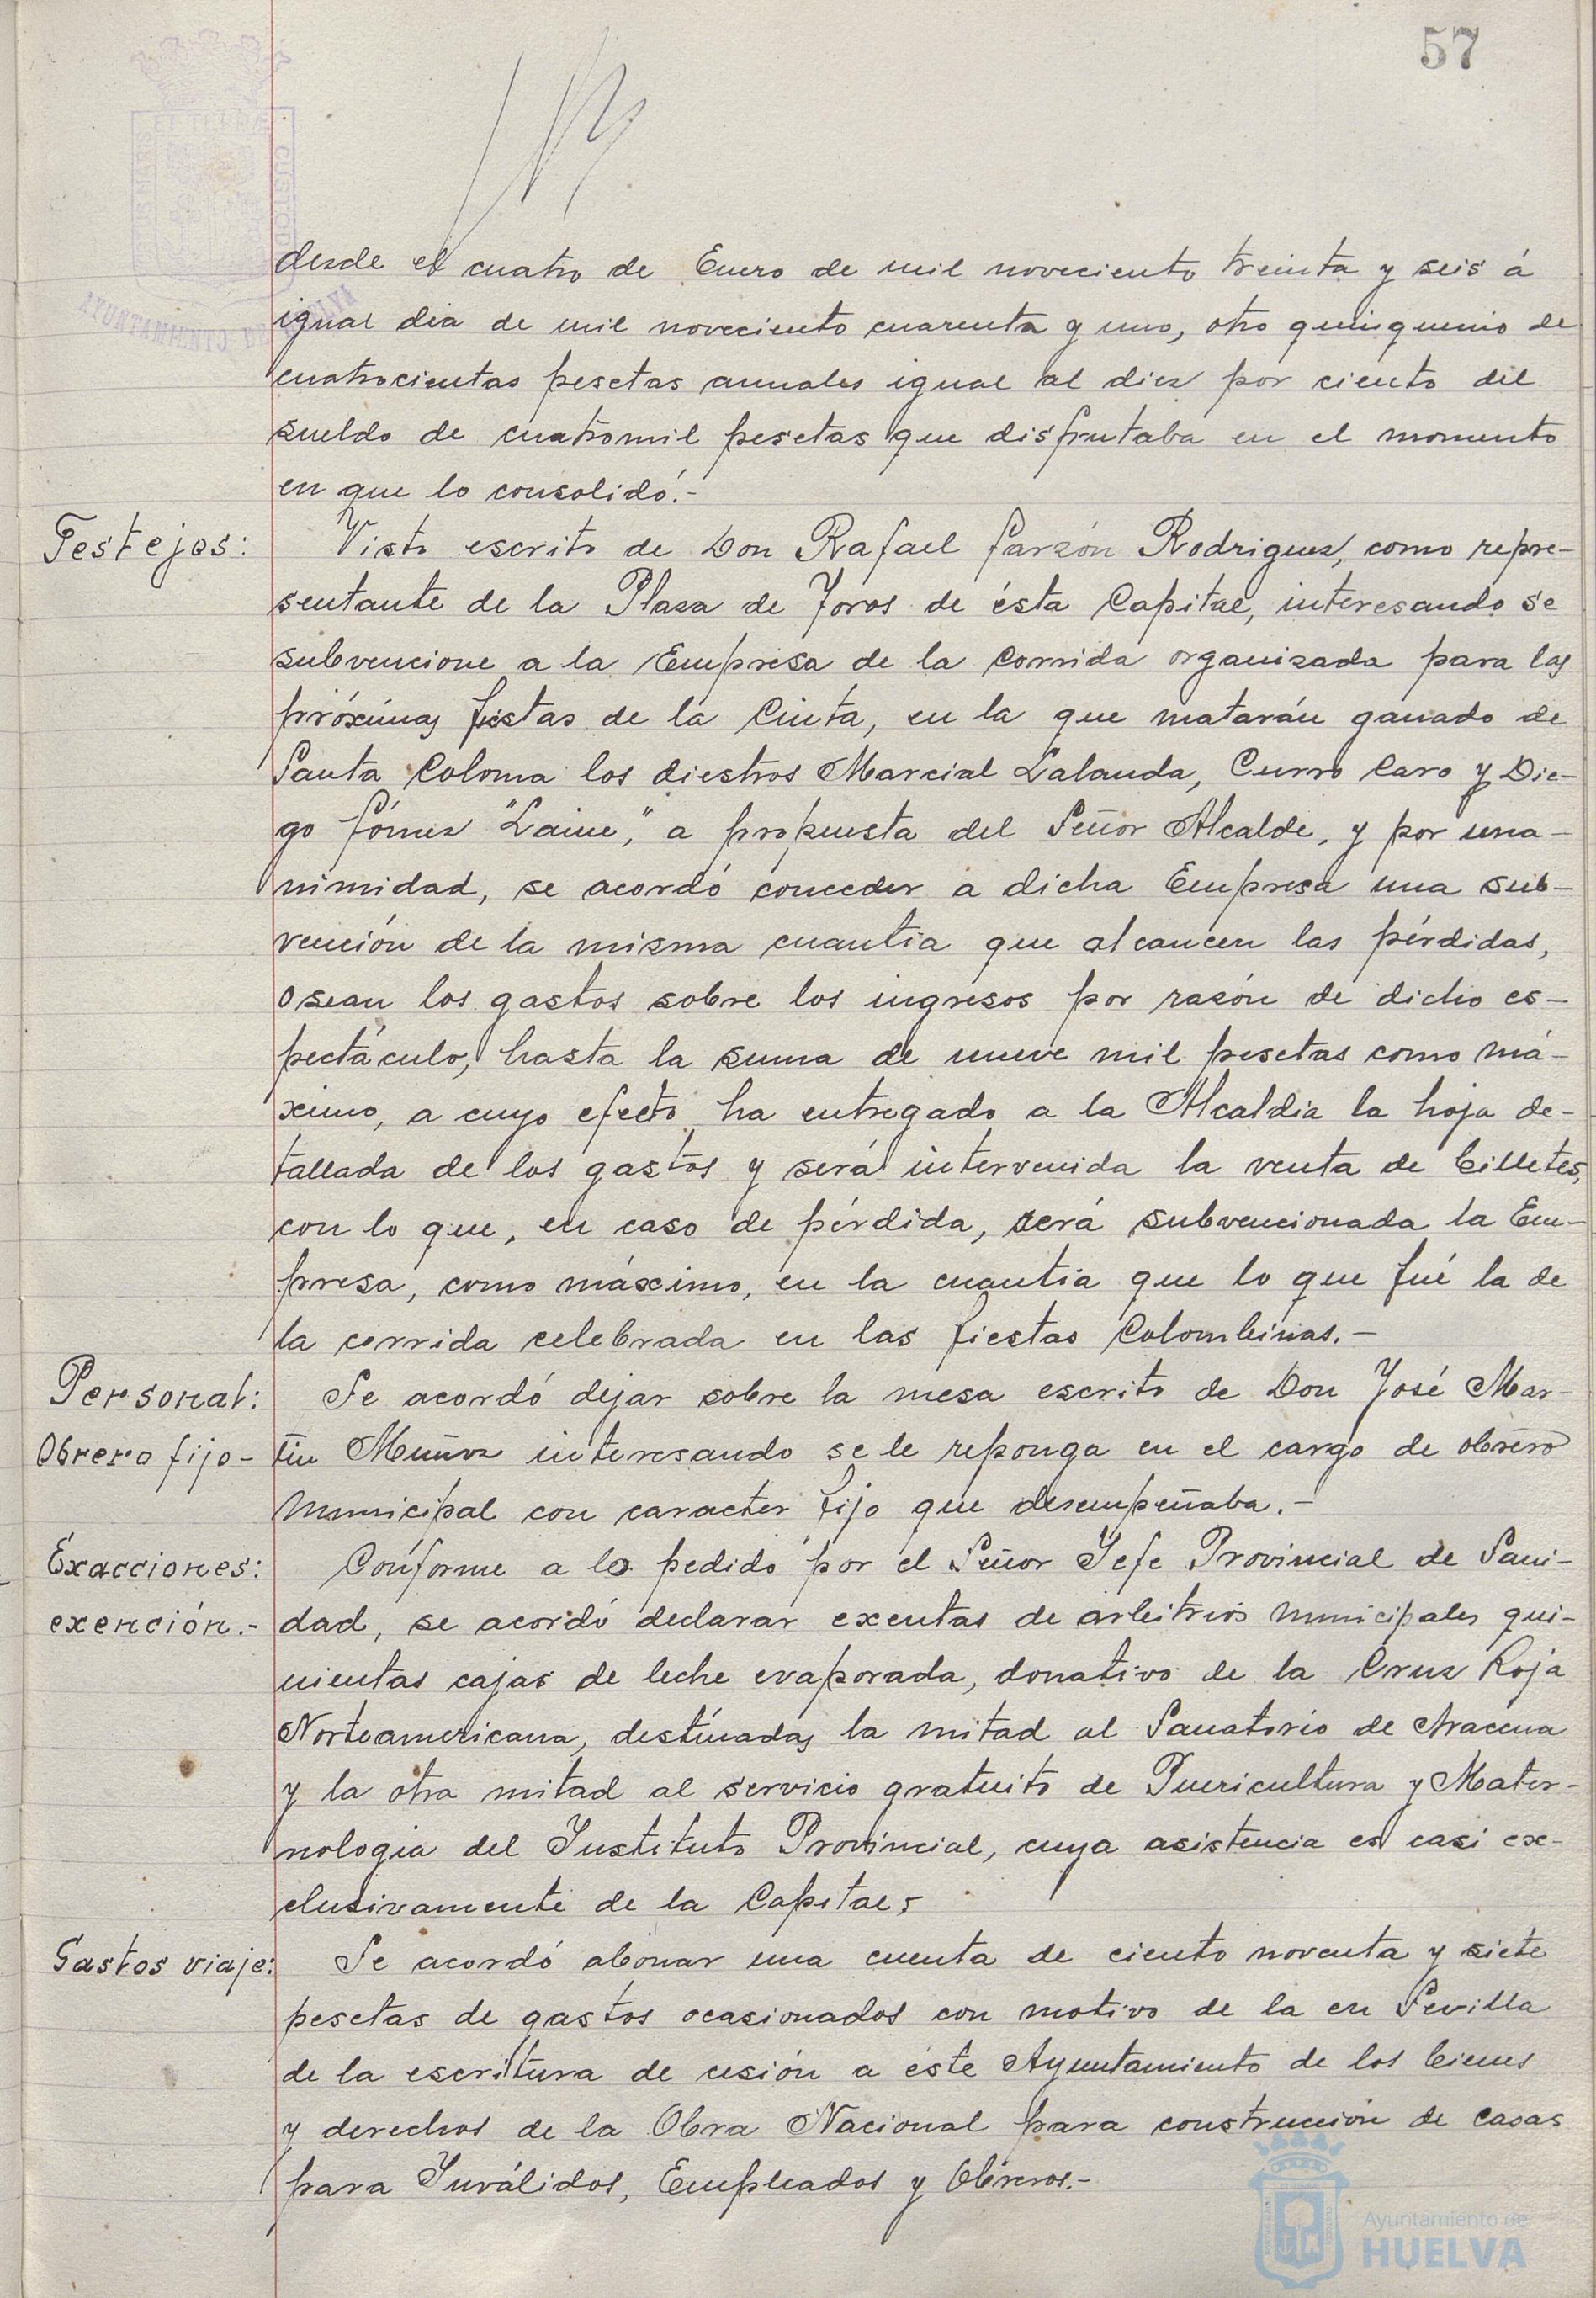 57
desde el cuatro de Enero de mil noveciento treinta y seis á
igual dia de mil noveciento cuarenta y uno, otro quinquenio de
cuatrocientas pesetas anuales igual al diez por ciento del
sueldo de cuatromil pesetas que disfrutaba en el momento
en que lo consolidó.-
Festejos: Visto escrito de Don Rafael Garzón Rodriguez, como repre-
sentante de la Plaza de Toros de ésta Capital, interesando se
subvencione a la Empresa de la Corrida organizada para las
próximas fiestas de la Cinta, en la que matarán ganado de
Santa Coloma los diestros Marcial Lalanda, Curro Caro y Die-
go Gómez "Laine," a propuesta del Señor Alcalde, y por una-
nimidad, se acordó conceder a dicha Empresa una sub-
vención de la misma cuantia que alcancen las pérdidas,
o sean los gastos sobre los ingresos por razón de dicho es-
pectáculo, hasta la suma de nueve mil pesetas como má-
ximo, a cuyo efecto ha entregado a la Alcaldia la hoja de-
tallada de los gastos y será intervenida la venta de billetes,
con lo que, en caso de pérdida, será subvencionada la Em-
presa, como máximo, en la cuantia que lo que fué la de
la corrida celebrada en las fiestas Colombinas.-
Personal: Se acordó dejar sobre la mesa escrito de Don José Mar-
Obrero fijo- tin Muñoz interesando se le reponga en el cargo de obrero
municipal con caracter fijo que desempeñaba.-
Exacciones: Conforme a lo pedido por el Señor Jefe Provincial de Sani-
exención.- dad, se acordó declarar exentas de arbitrios municipales qui-
nientas cajas de leche evaporada, donativo de la Cruz Roja
Norteamericana, destinadas la mitad al Sanatorio de Aracena
y la otra mitad al servicio gratuito de Puericultura y Mater-
nologia del Instituto Provincial, cuya asistencia es casi ex-
clusivamente de la Capital,
Gastos viaje: Se acordó abonar una cuenta de ciento noventa y siete
pesetas de gastos ocasionados con motivo de la en Sevilla
de la escritura de cesión a éste Ayuntamiento de los bienes
y derechos de la Obra Nacional para construcción de casas
para Inválidos, Empleados y Obreros.-
AYUNTAMIENTO DE HUELVA
Ayuntamiento de
HUELVA